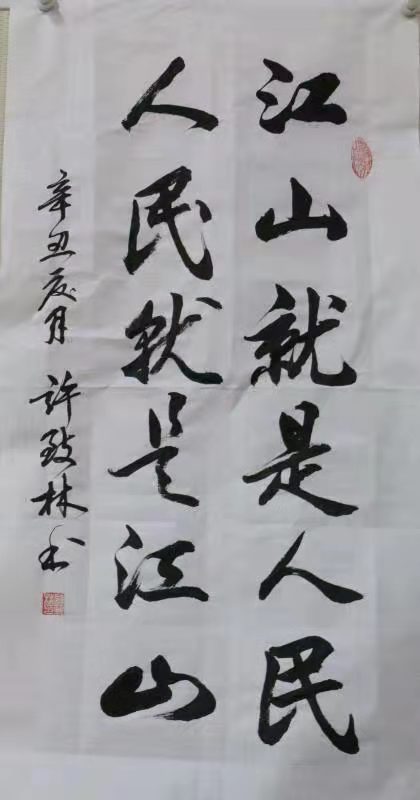 江山就是人民
人民就是江山
辛丑夏月 许致林书